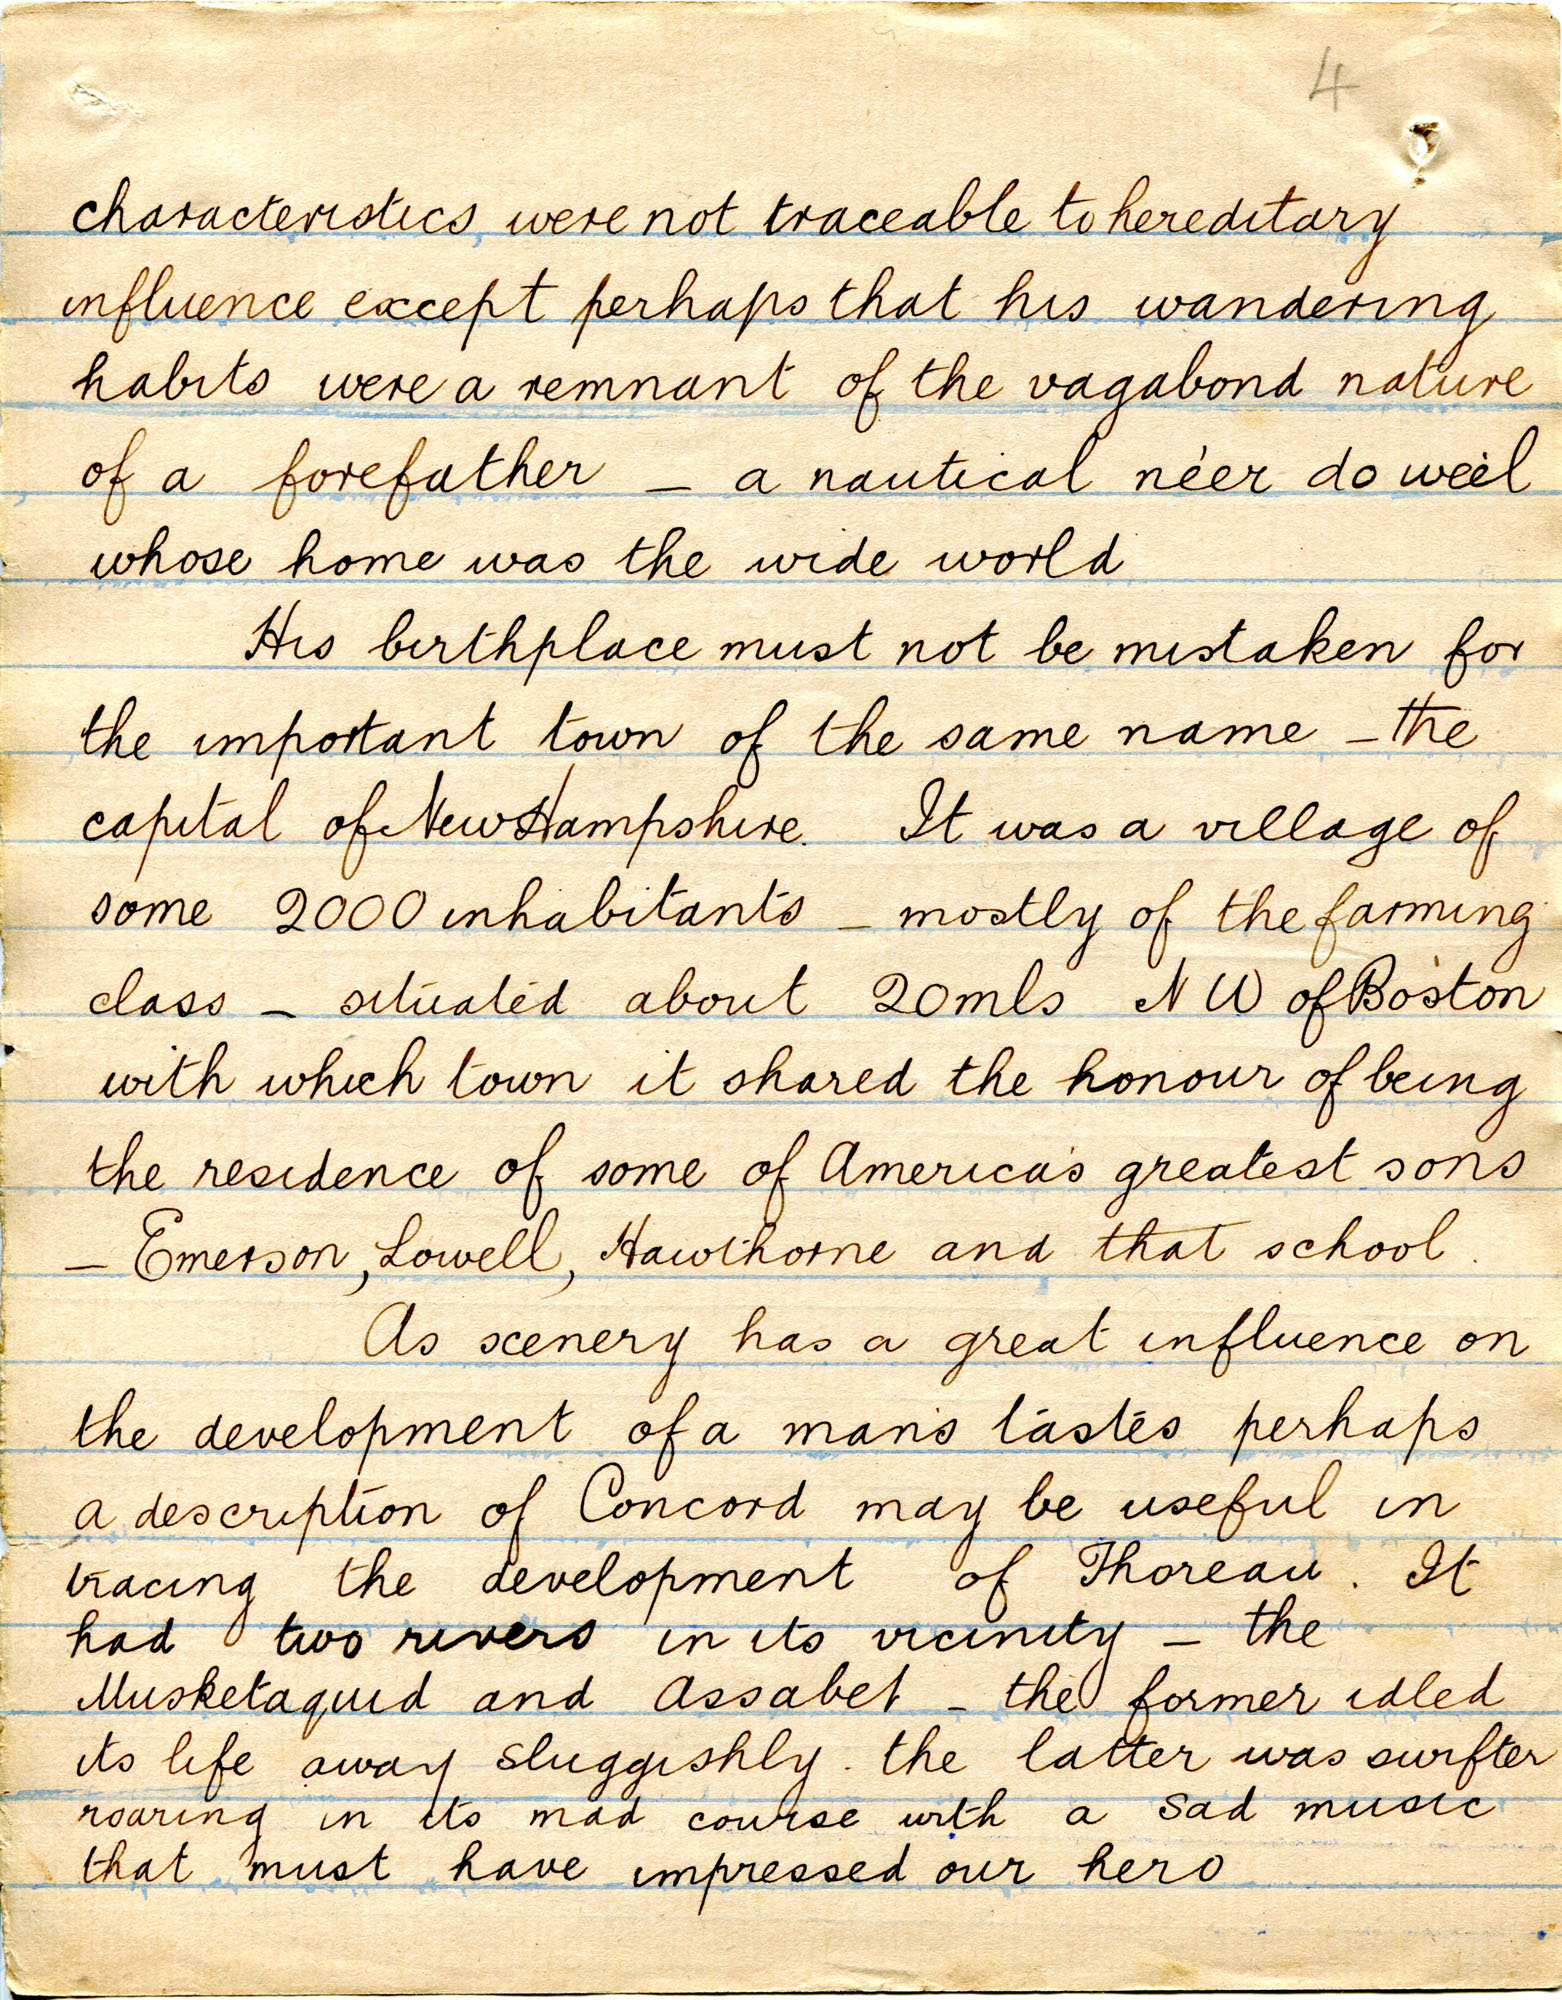 4
characteristics, were not traceable to hereditary
influence except perhaps that his wandering
habits were a remnant of the vagabond nature
of a forefather – a nautical né'er do we'el
whose home was the wide world
His birthplace must not be mistaken for
the important town of the same name – the
capital of New Hampshire. It was a village of
some 2000 inhabitants – mostly of the farming
class – situated about 20 mls N W of Boston
with which town it shared the honour of being
the residence of some of America's greatest sons
– Emerson, Lowell, Hawthorne and that school.
As scenery has a great influence on
the development of a man's tastes perhaps
a description of Concord may be useful in
tracing the development of Thoreau. It
had two rivers in its vicinity – the
Musketaquid and Assabet – the former idled
its life away sluggishly. the latter was swifter
roaring in its mad course with a sad music
that must have impressed our hero